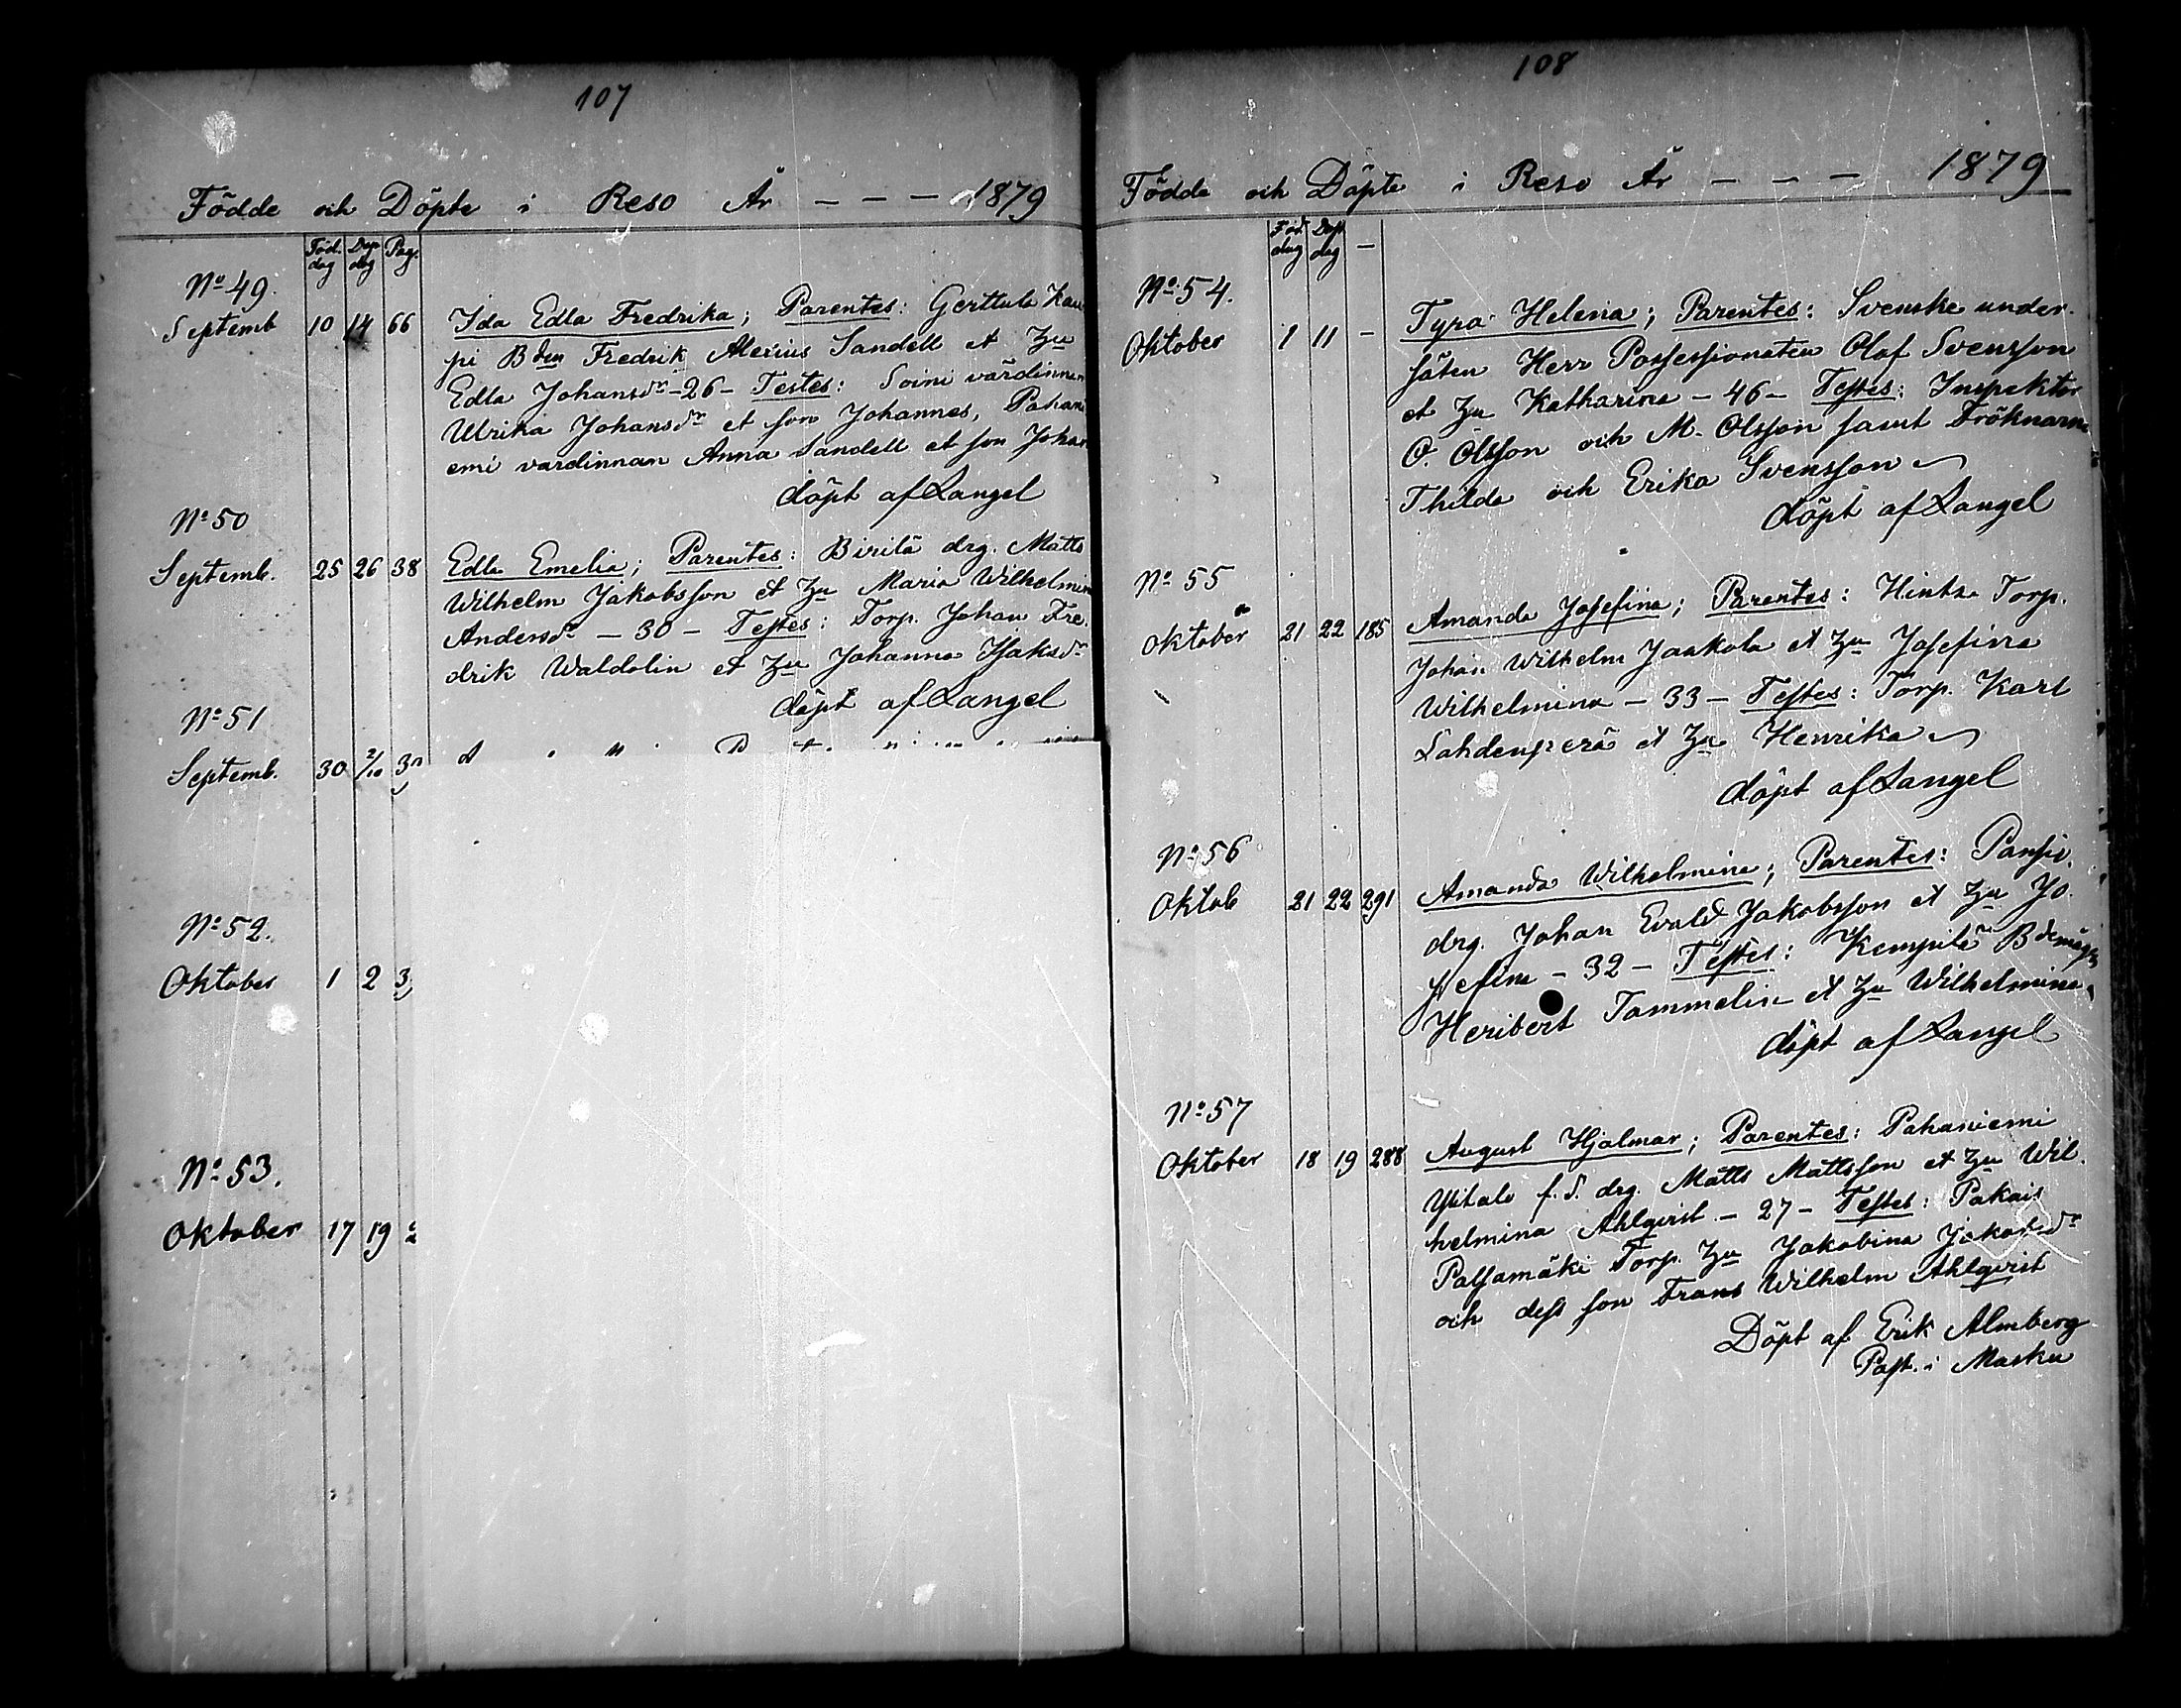 107
Födde och Döpte i Reso År - - - 1879
Föd. dag Döp dag Pag.
No 49.
Septemb 10 14 66 Ida Edla Fredrika; Parentes: Gerttula Kau
pi Bden Fredrik Alexius Sandell et Hu
Edla Johansdr - 26 - Testes: Soini värdinnan
Ulrika Johansdr et son Johannes, Pahani
emi värdinnan Anna Sandell et son Johan
döpt af Langel
No 50
Septemb. 25 26 38 Edla Emelia; Parentes: Birilä drg. Matts
Wilhelm Jakobsson et Hu Maria Wilhelmin
Andersdr - 30 - Testes: Torp. Johan Fre.
drik Waldolin et Hu Johanna Isaksdr
döpt af Langel
No 51
Septemb. 30 2/10
No 52.
Oktober 1 2 3
No 53.
Oktober 17 19
108
Födde och Döpte i Reso År - - - 1879
Föd dag Döp dag -
No 54.
Oktober 1 11 - Tyra Helena; Parentes: Svenske under.
såten Herr Possessionaten Olof Svensson
et Hu Katharina - 46 - Testes: Inspektor
O. Olsson och M. Olsson samt Fröknarna
Thilda och Erika Svensson
döpt af Langel
No 55
Oktober 21 22 185 Amanda Josefina; Parentes: Hintsa Torp.
Johan Wilhelm Jaakola et Hu Josefina
Wilhelmina - 33 - Testes: Torp. Karl
Lahdenperä et Hu Henrika
döpt af Langel
No 56
Oktob 21 22 291 Amanda Wilhelmina; Parentes: Pansio.
drg. Johan Evald Jakobsson et Hu Jo.
sefina - 32 - Testes: Kempilä Bdemåg
Heribert Tammelin et Hu Wilhelmina.
döpt af Langel
No 57
Oktober 18 19 288 August Hjalmar; Parentes: Pahaniemi
Ylitalo f. d. drg. Matts Mattsson et Hu Wil.
helmina Ahlqvist - 27 - Testes: Pakais
Passamäki Torp. Hu Jakobina Jakobsdr
och dess son Frans Wilhelm Ahlqvist
Döpt af Erik Almberg
Past. i Masku